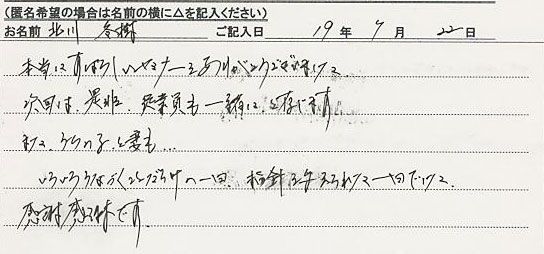 (匿名希望の場合は名前の横に△を記入ください)
お名前 北川 冬樹 ご記入日 19年 7月 22日
本当にすばらしいセミナーをありがとうございました
次回は、是非、従業員も一緒に、と存じます
また、うちの子、と妻も…
いろいろな 一日、指針を与えられた一日でした、
感謝感謝です